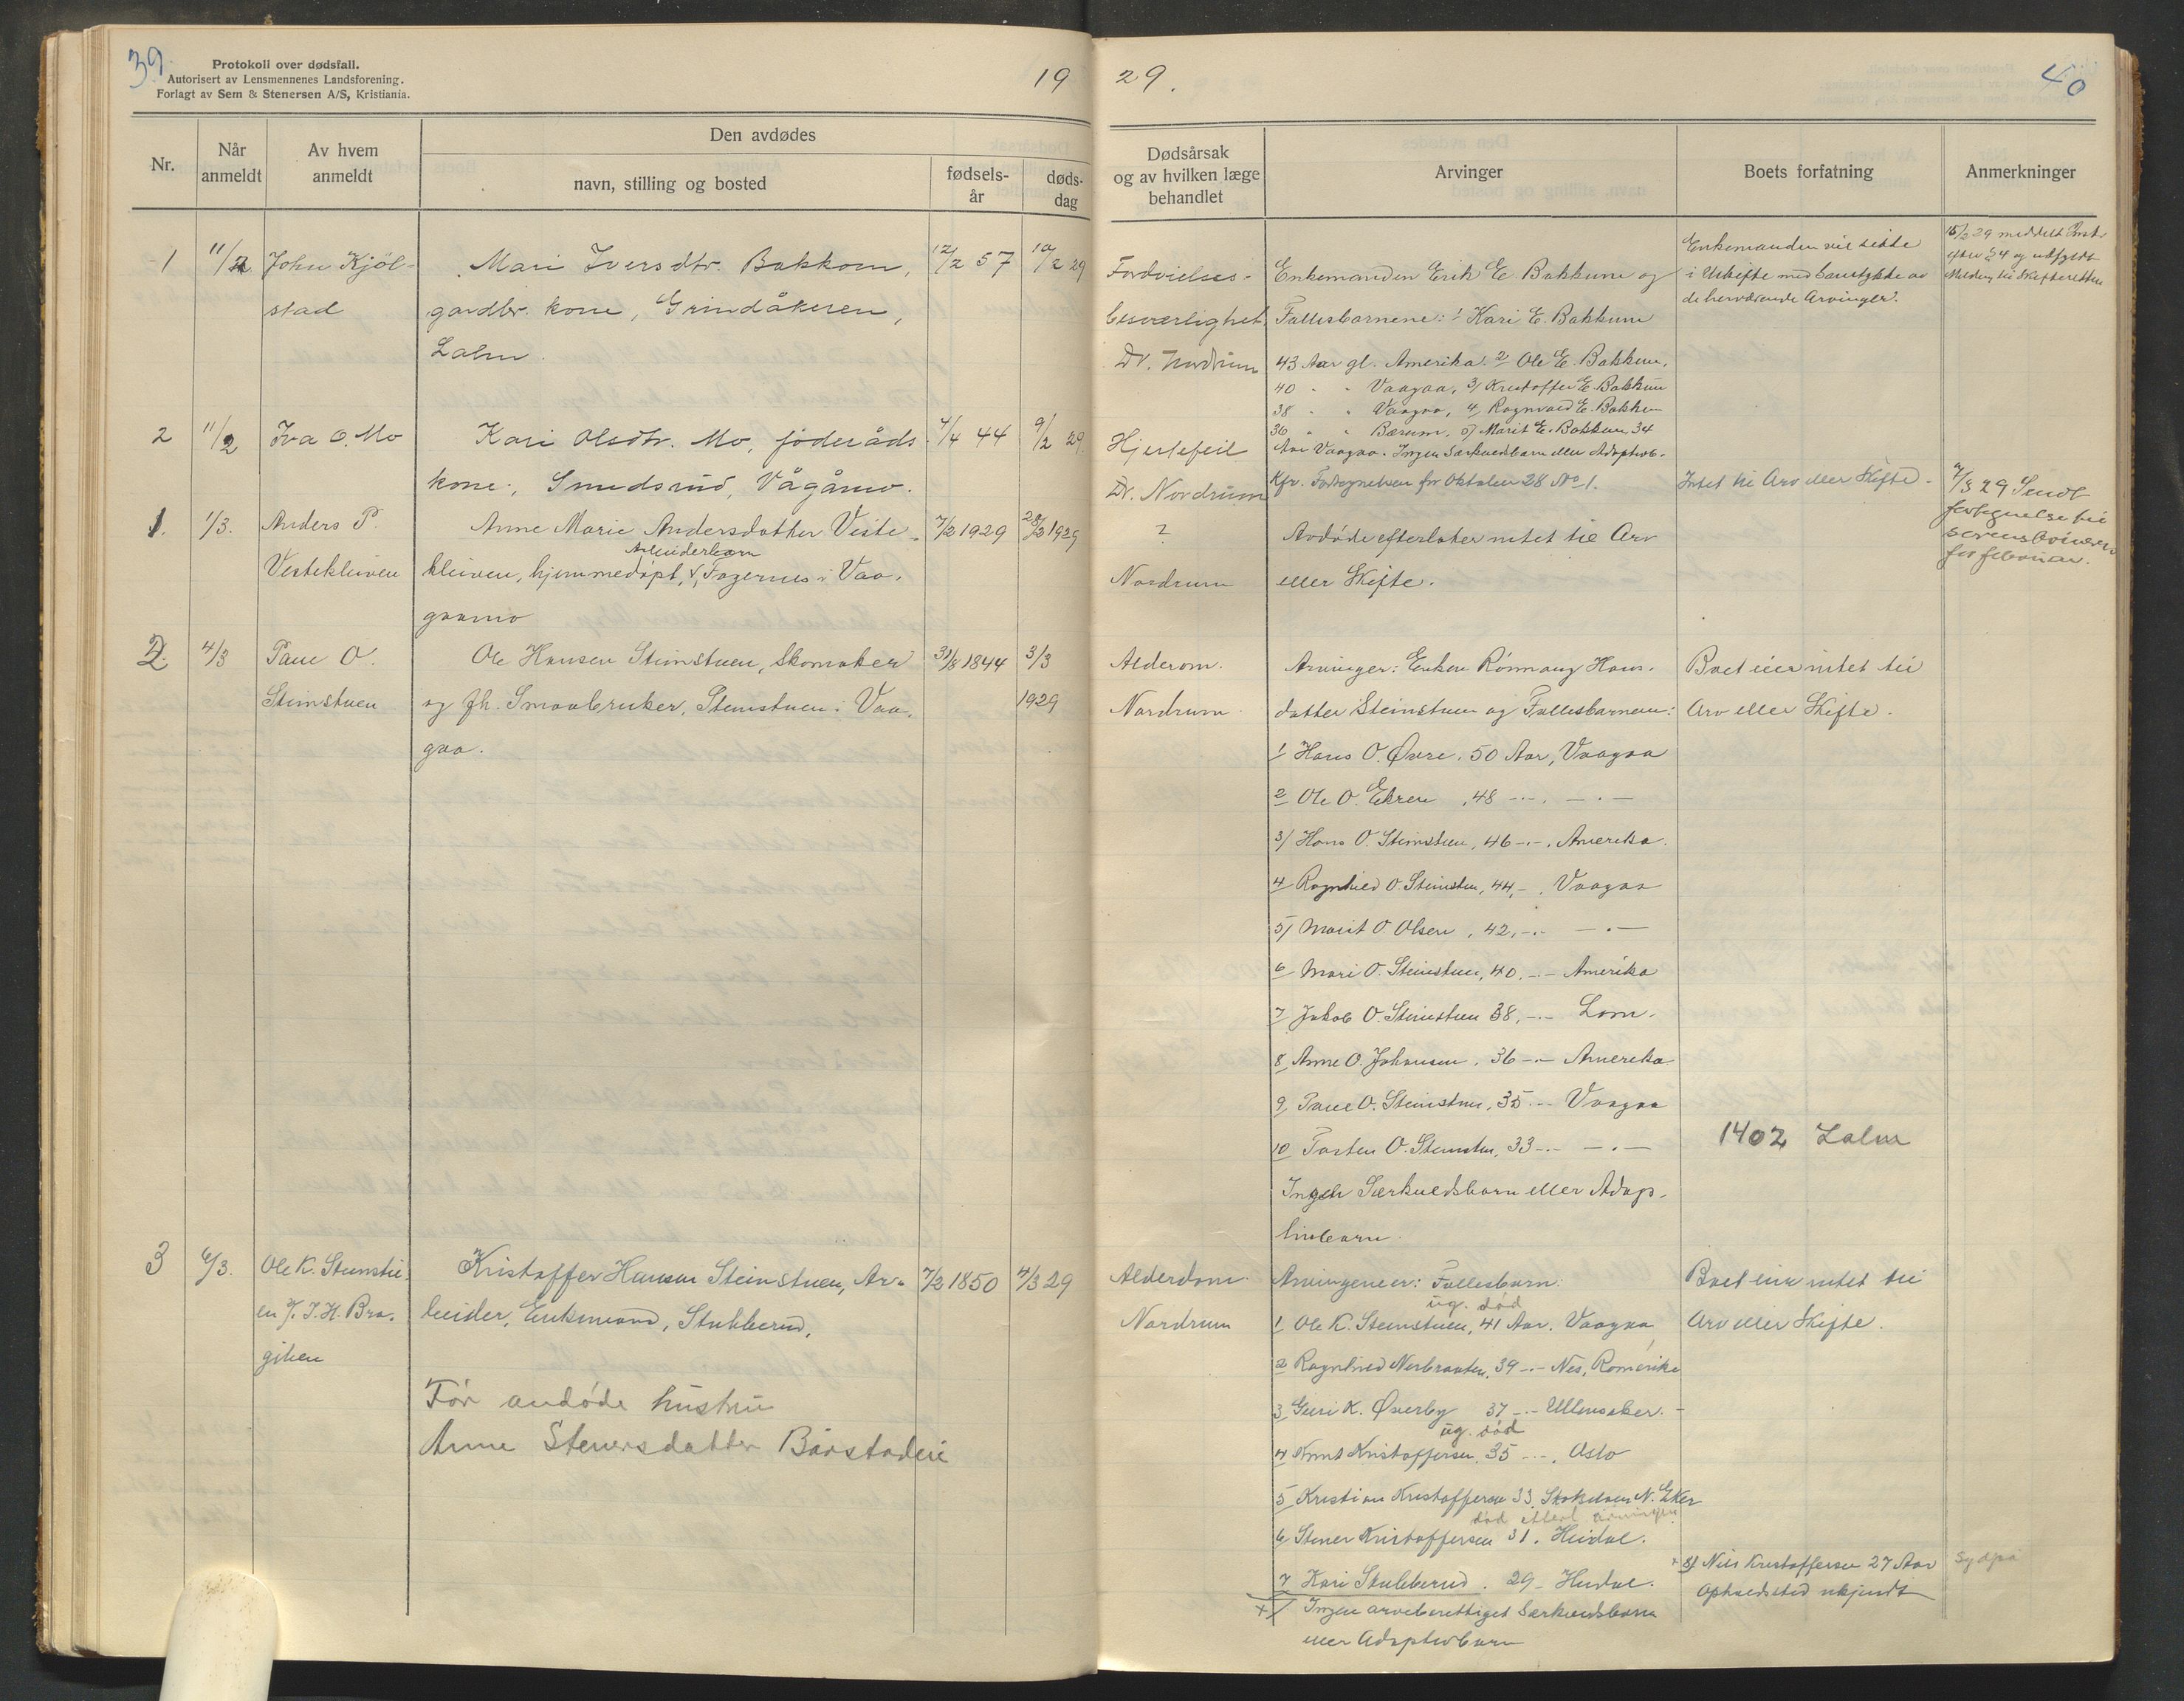 39.
Protokoll over dødsfall.
Autorisert av Lensmennenes Landsforening.
Forlagt av Sem & Stenersen A/S, Kristiania.
19 29.
40
Nr.
Når anmeldt
Av hvem anmeldt
Den avdødes
navn, stilling og bosted
fødsels-år
døds-dag
Dødsårsak og av hvilken læge behandlet
Arvinger
Boets forfatning
Anmerkninger
1
11/2
John Kjöl-
stad
Mari Iversdtr. Bakkom,
gardbr. kone, Grindåkeren,
Lalm.
12/2 57
10/2 29
Fordöielses-
besværlighet
Dr. Nordrum
Enkemanden Erik E. Bakkum og
Fællesbarnene: 1 Kari E. Bakkum
43 Aar gl. Amerika. 2 Ole E. Bakkum,
40 " " Vaagaa, 3/ Kristoffer E. Bakkum
38 " " Vaagaa, 4/ Ragnvald E. Bakkum
36 " " Bærum, 5/ Marit E. Bakkum 34
Aar Vaagaa. Ingen Særkuldsbarn eller Adoptivb.
Enkemanden vil sitte
i Uskifte med Samtykke av
de herværende Arvinger.
15/2 29 meddelt
efter § 4 og utfyldt
Melding til Skifteretten
2
11/2
Iva O. Mo
Kari Olsdtr. Mo, föderåds
kone, Smedsrud, Vågåmo.
4/4 44
9/2 29
Hjertefeil
Dr. Nordrum
Kfr. Fortegnelsen for Oktober 28 No 1.
Intet til Arv eller Skifte.
4/3 29 Sendt
fortegnelse til
sorenskriveren
for februar.
1.
1/3.
Anders P.
Vistekleiven
Anne Marie Andersdatter Viste-
Arbeiderbarn
kleiven, hjemmedöpt, Fagernes i Vaa-
gaamo
7/2 1929
28/2 1929
?
Nordrum
Avdöde efterlater intet til Arv
eller Skifte.
2.
4/3
Paul O.
Steinstuen
Ole Hansen Steinstuen, Skomaker
og fh. Smaabruker, Steinstuen i Vaa-
gaa.
31/8 1844
3/3
1929
Alderdom.
Nordrum
Arvinger: Enken Rönnaug Hans-
datter Steinstuen og Fællesbarnen:
1 Hans O. Øvre, 50 Aar, Vaagaa
2 Ole O. Ekren, 48 -"- -"-
3/ Hans O. Steinstuen, 46 -"- Amerika.
4 Ragnhild O Steinstuen, 44, - Vaagaa
5/ Marit O. Olsen, 42, -"- -"-
6 Mari O. Steinstuen, 40, -"- Amerika
7 Jakob O. Steinstuen 38, -"- Lom.
8 Anne O. Johansen, 36 -"- Amerika
9, Paul O. Steinstuen, 35 -"- Vaagaa
10 Torsten O. Steinstuen, 33 -"- -"-
Ingen Særkuldsbarn eller Adop-
tivbarn.
Boet eier intet til
Arv eller Skifte.
1402 Lalm
3
6/3.
Ole K. Steinstu-
en v/ J. H. Bra-
giken
Kristoffer Hansen Steinstuen, Ar-
beider, Enkemand, Stubberud,
Før avdöde hustru
Anne Stenersdatter Bårstadeie
7/2 1850
4/3 29
Alderdom.
Nordrum
Arvingene er: Fællesbarn:
ug. död
1 Ole K. Steinstuen, 41 Aar. Vaagaa
2 Ragnhild Nerbraaten, 39 -"- Nes, Romerike
3 Guri K. Øverby 37 -"- Ullensaker.
ug. död
4 Knut Kristoffersen, 35 -"- Oslo
5 Kristian Kristoffersen 33, N. Eker
död etterl. arvinger
6 Stener Kristoffersen 31. Heidal.
7 Kari Stubberud. 29 - Heidal.
+/ Ingen arveberettiget Særkuldsbarn
eller Adoptivbarn
Boet eier intet til
Arv eller Skifte.
+ 8/ Nils Kristoffersen 27 Aar
Opholdssted ukjendt
Sydpå